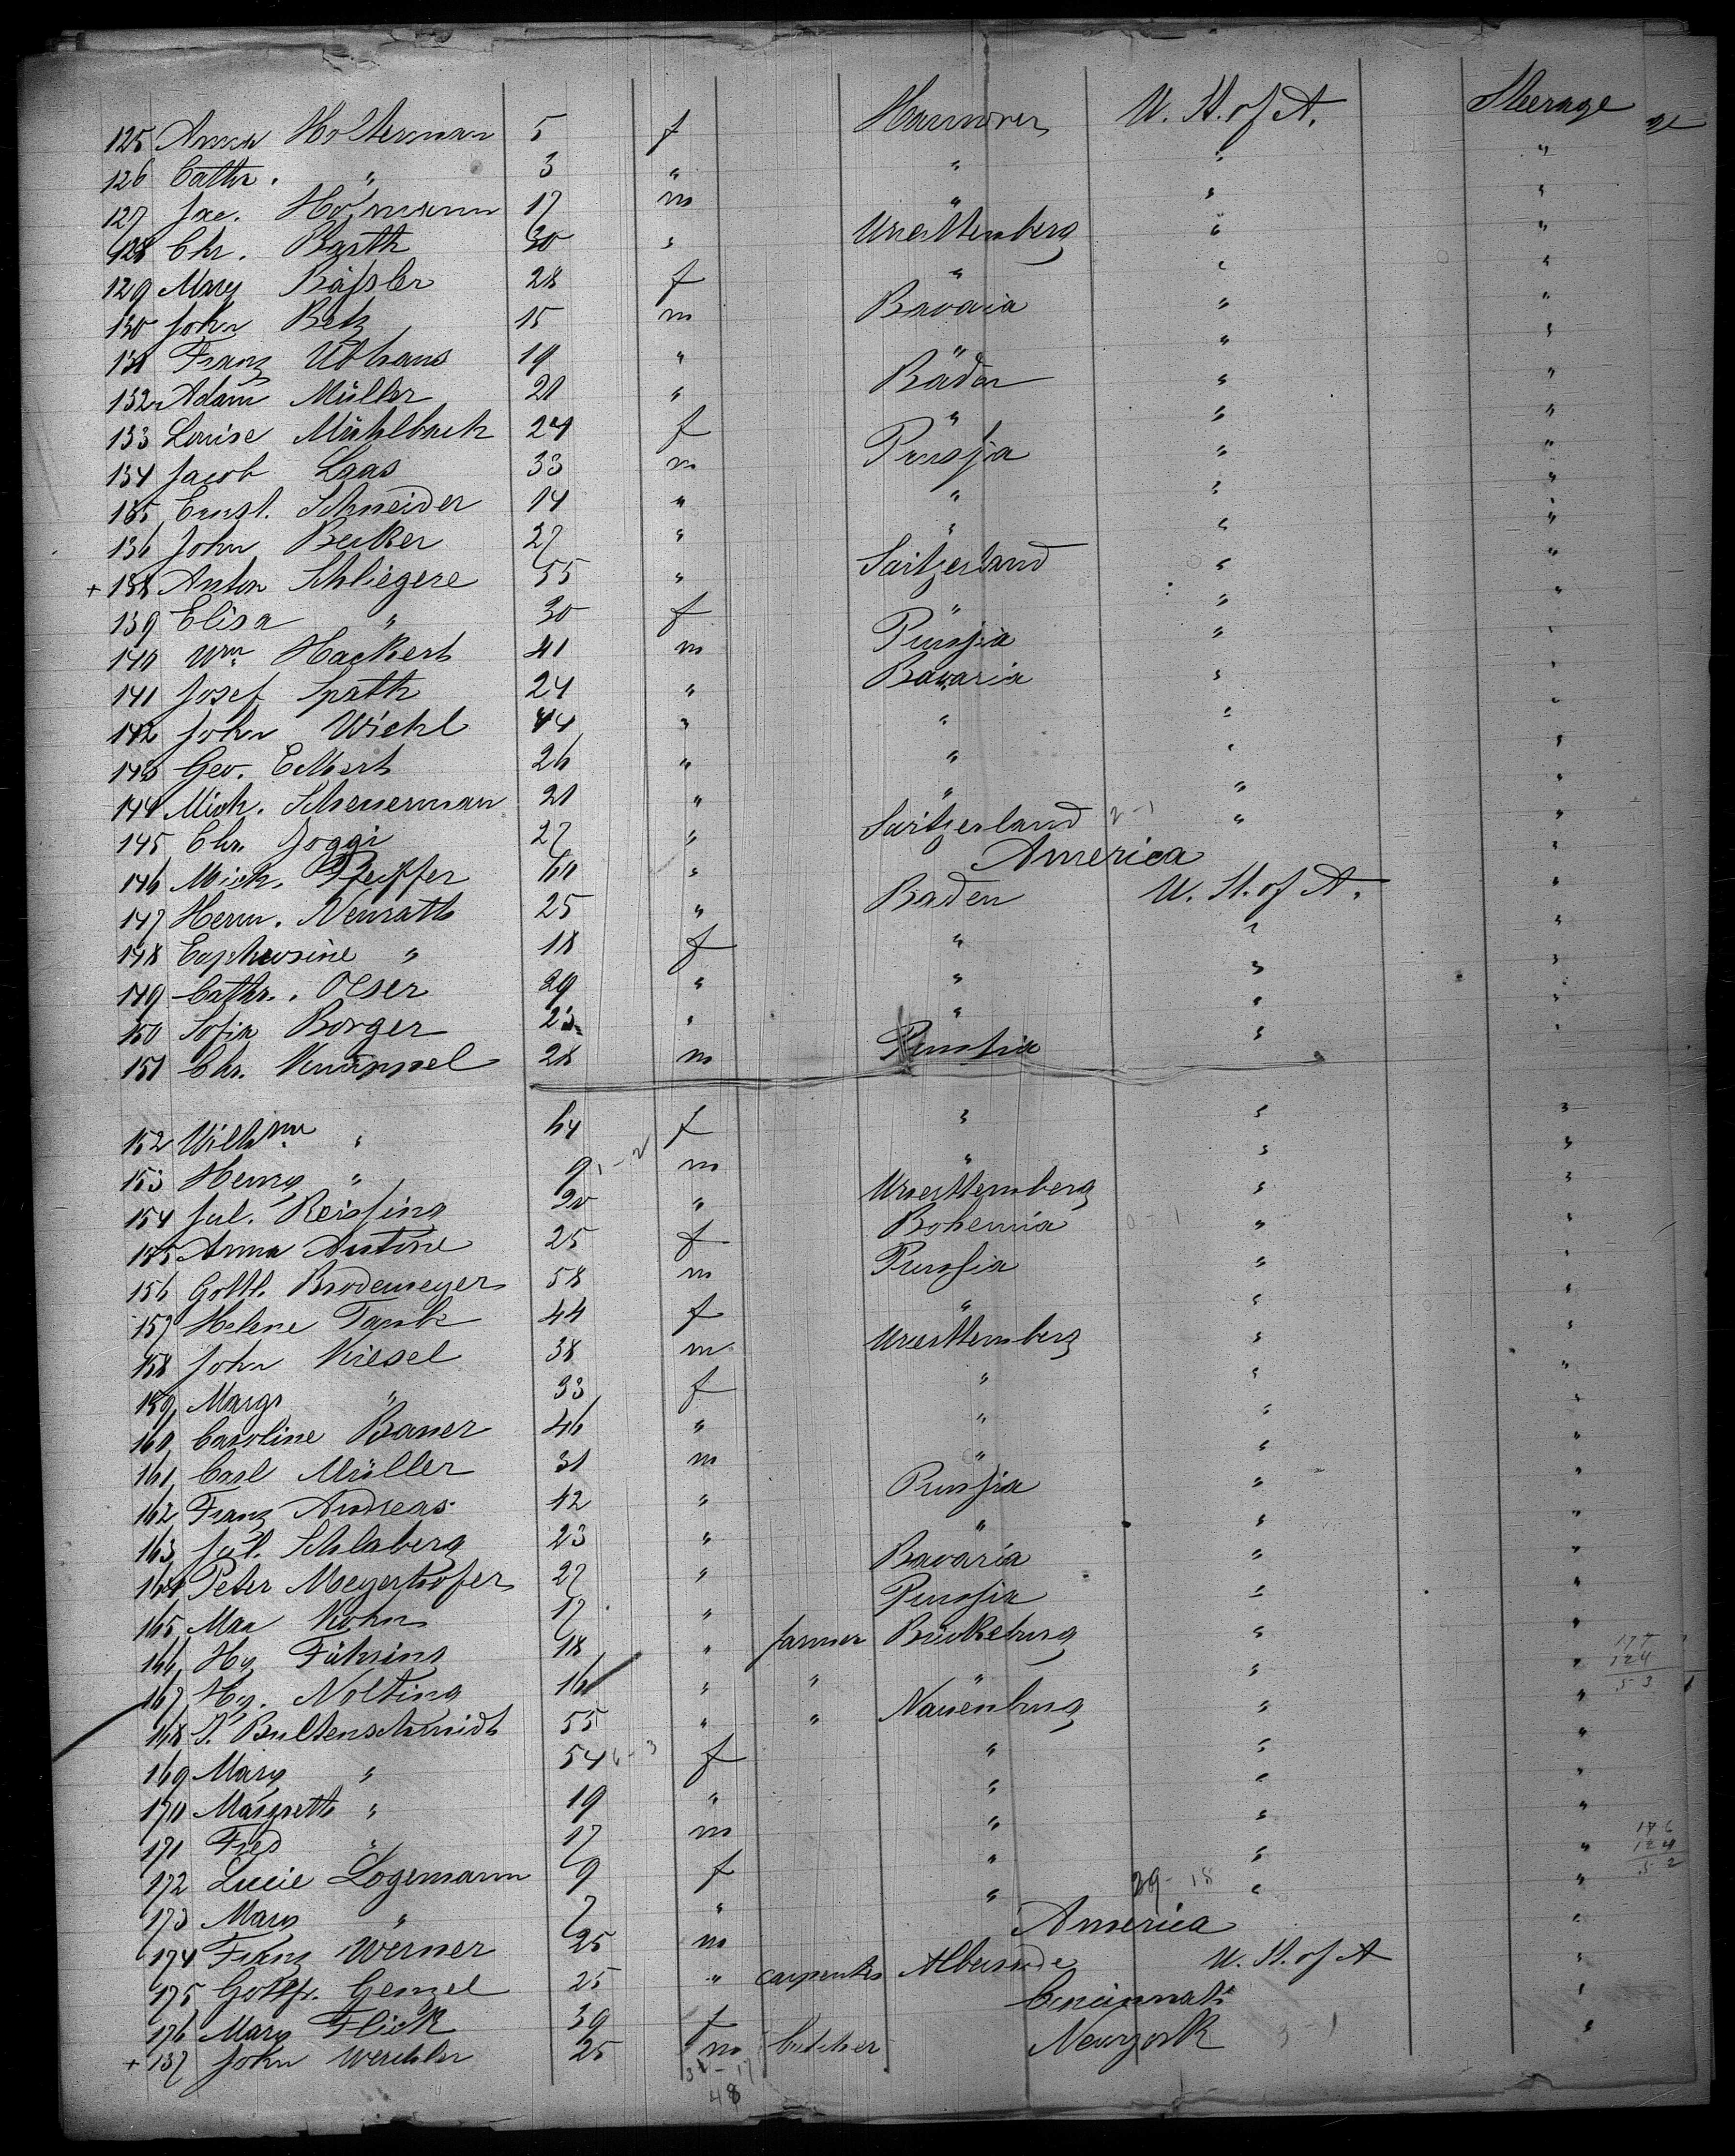 125 Anna Holterman 5 f Hannover U. St. of A. Steerage
126 Cathr. " 3 " " " "
127 Jac. Homann 17 m " " "
128 Chr. Barth 30 " Wuerttemberg " "
129 Mary Bäßler 28 f " " "
130 John Betz 15 m Bavaria " "
131 Franz Ubhaus 19 " " " "
132 Adam Müller 21 " Baden " "
133 Louise Mühlbach 24 f " " "
134 Jacob Laas 33 m Prussia " "
135 Ernst. Schneider 14 " " " "
136 John Becker 27 " " " "
+ 138 Anton Schliegere 55 " Switzerland " "
139 Elisa " 30 f " " "
140 Wm Hackert 41 m Prussia " "
141 Josef Spath 24 " Bavaria " "
142 John Wiehl 44 " " " "
143 Geo. Eckert 26 " " " "
144 Mich. Scheuerman 21 " " " "
145 Chr. Joggi 27 " Switzerland 2-1 " "
146 Mich. Pfeiffer 60 " America "
147 Herm. Neurath 25 " Baden U. St. of A. "
148 Euphrosine " 18 f " " "
149 Cathr. Oeser 29 " " " "
150 Sofia Borger 23 " " " "
151 Chr. Knüppel 28 m Prussia " "
152 Wilhme " 64 f " " "
153 Henry " 9 1-2 m " " "
154 Jul. Reissing 30 " Wuerttemberg " "
155 Anna Antone 25 f Bohemia 0-1 " "
156 Gottl. Brodemeyer 58 m Prussia " "
157 Helene 44 f " " "
158 John Kiesel 38 m Wuerttemberg " "
159 Margr " 33 f " " "
160 Caroline Bauer 46 " " " "
161 Carl Müller 31 m " " "
162 Franz Andreas 42 " Prussia " "
163 Jul. Schlaberg 23 " " " "
164 Peter Meyerhofer 27 " Bavaria " "
165 Max Kohn 17 " Prussia " "
166 Hy Führing 18 " farmer Bückeburg " "
167 Hy. Nolting 16 " " " " "
168 Bultenschmidt 55 " " Nauenburg " "
169 Mary " 54 6-3 f " " "
170 Margreth " 19 " " " "
171 Fred " 17 m " " "
172 Lucie Logemann 9 f " " "
173 Mary " 7 " " 29-18 " "
174 Franz Werner 25 m America "
175 Gottfr. Genzel 25 " carpenter U. St. of A "
176 Mary Flick 39 f Cincinnati "
+ 137 John 25 m butcher Newyork 3-1 "
31-17
48
177
124
53
176
124
52